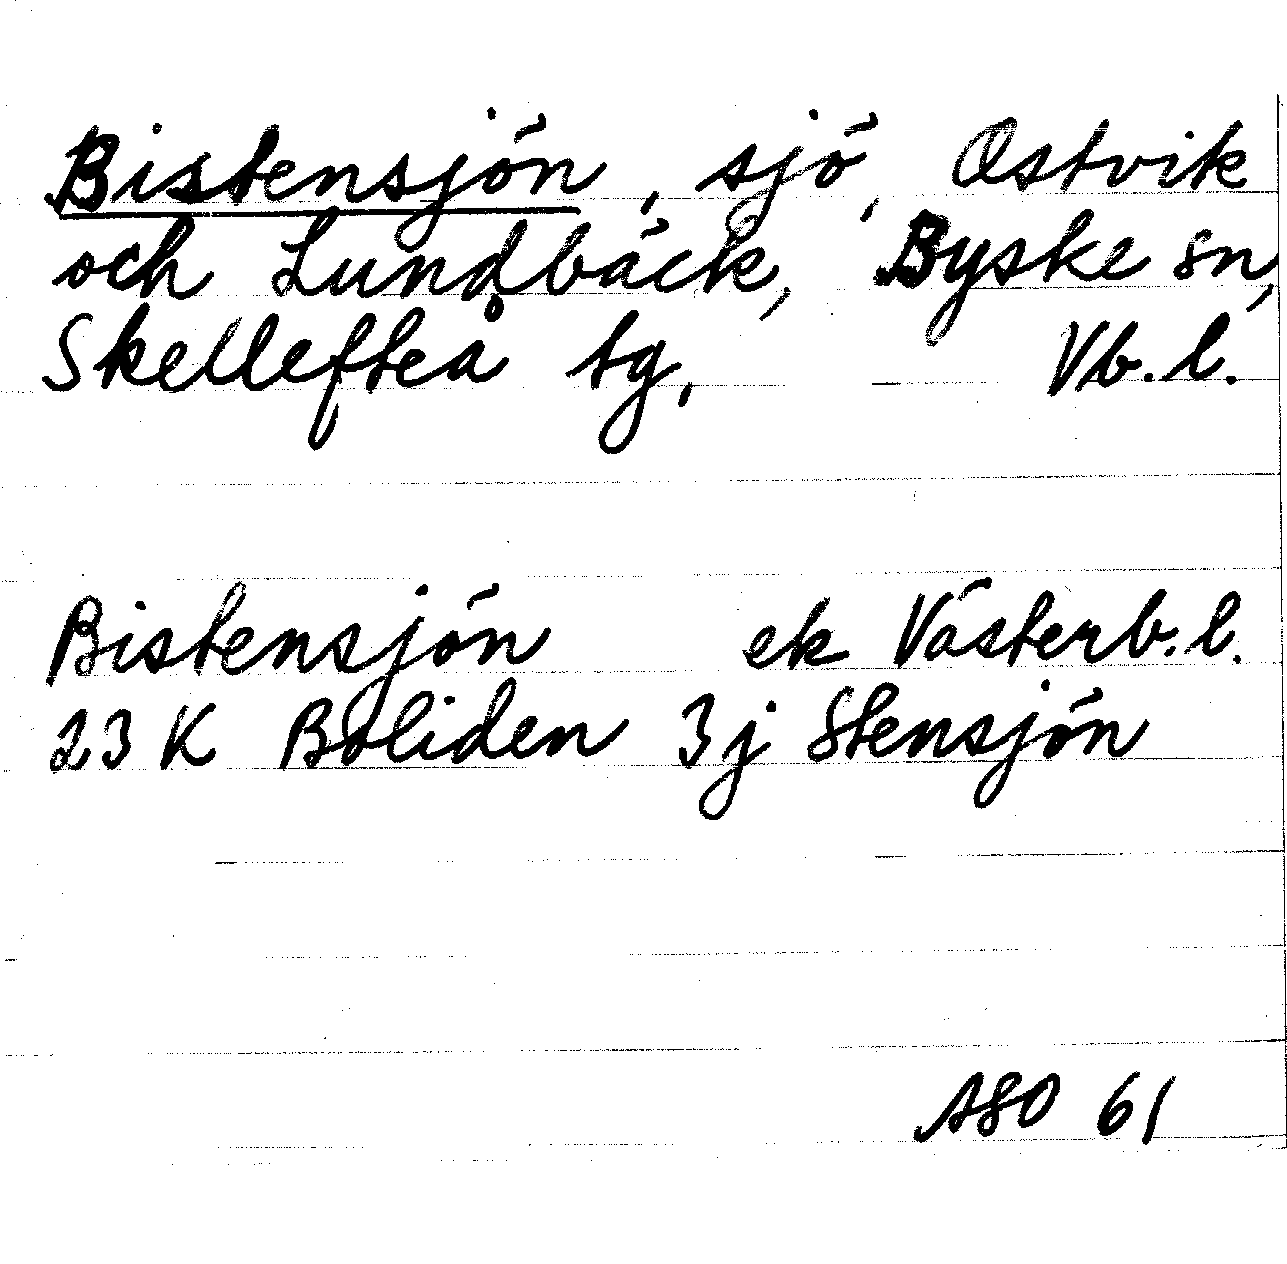 Bistensjön, sjö, Ostvik
och Lundbäck, Byske sn,
Skellefteå tg, Vb. l.
Bistensjön ek Västerb. l.
23 K Boliden 3j Stensjön
ASO 61